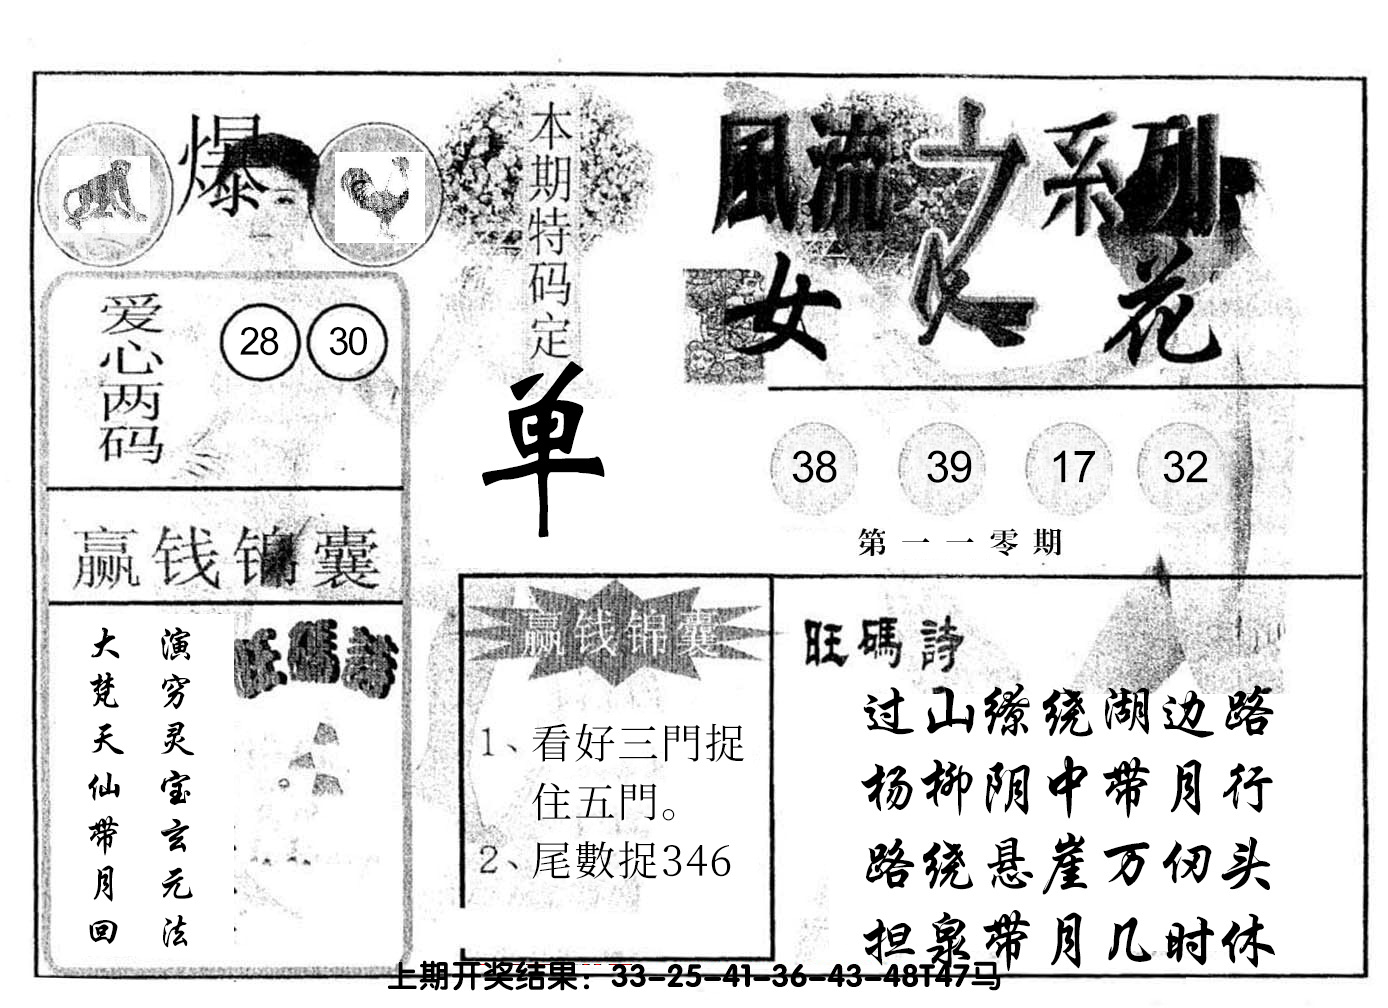 爆
本期特码定
单
風流之系列
女人花
爱心两码
28 30
38 39 17 32
第一一零期
赢钱锦囊
演穷灵宝玄元法
大梵天仙带月回
旺碼詩
赢钱锦囊
1、看好三門捉
住五門。
2、尾數捉346
旺碼詩
过山缭绕湖边路
杨柳阴中带月行
路绕悬崖万仞头
担泉带月几时休
上期开奖结果：33-25-41-36-43-48T47马